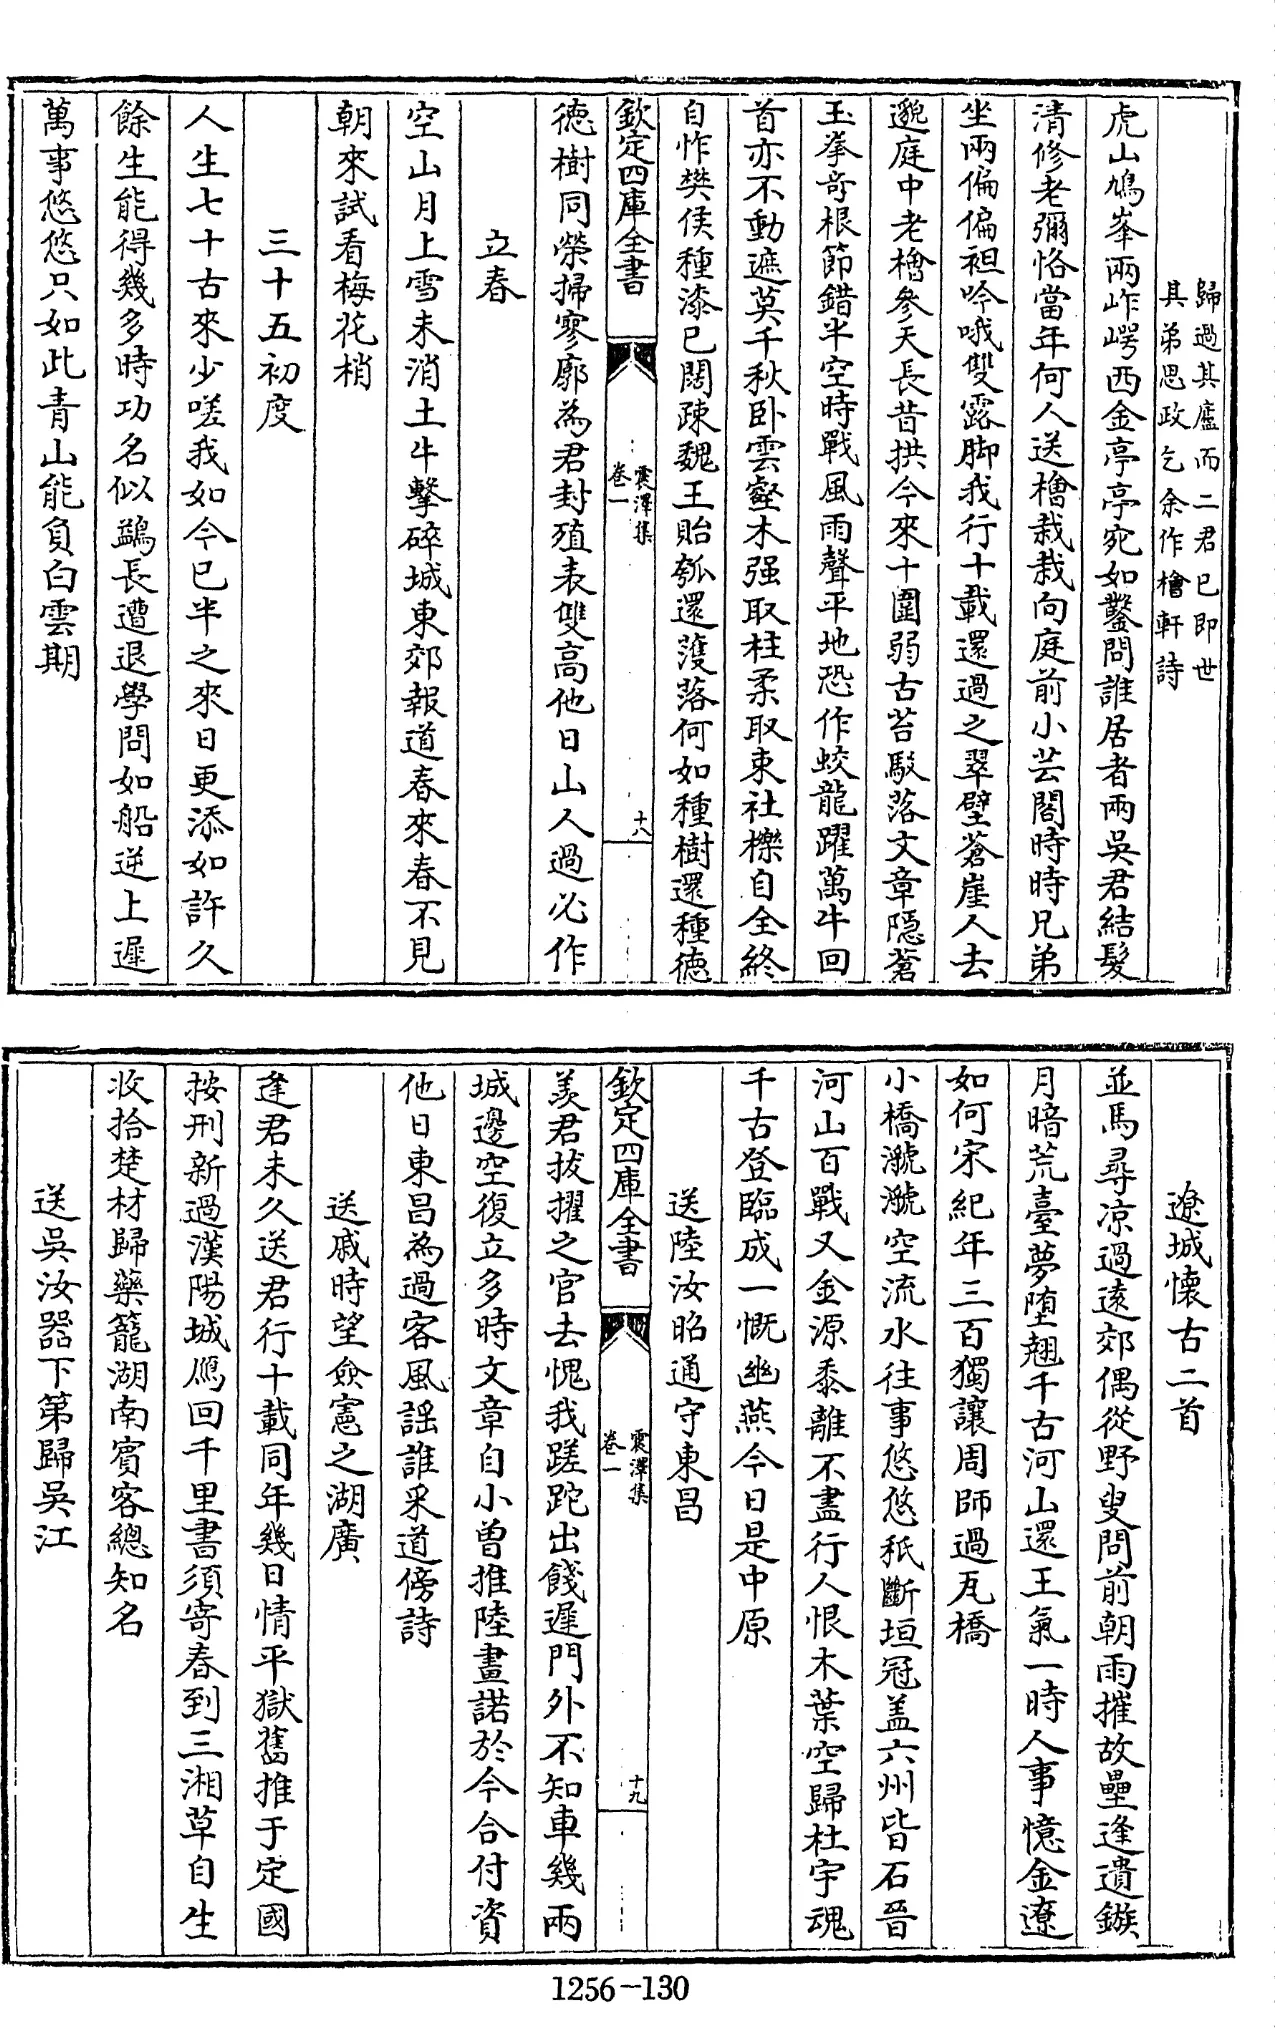 歸過其廬而二君已即世
其弟思政乞余作檜軒詩
虎山鳩峯兩岝崿西金亭亭宛如鑿問誰居者兩吳君結髮
清修老彌恪當年何人送檜栽栽向庭前小芸閣時時兄弟
坐兩偏偏袒吟哦雙露脚我行十載還過之翠壁蒼崖人去
邈庭中老檜參天長昔拱今來十圍弱古苔駁落文章隱蒼
玉拳奇根節錯半空時戰風雨聲平地恐作蛟龍躍萬牛回
首亦不動遮莫千秋卧雲壑木强取柱柔取束社櫟自全終
自怍樊侯種漆已闊疎魏王貽瓠還濩落何如種樹還種德
欽定四庫全書
震澤集
卷一
十八
德樹同榮掃寥廓為君封殖表雙高他日山人過必作
立春
空山月上雪未消土牛擊碎城東郊報道春來春不見
朝來試看梅花梢
三十五初度
人生七十古來少嗟我如今已半之來日更添如許久
餘生能得幾多時功名似鷁長遭退學問如船逆上遲
萬事悠悠只如此青山能負白雲期
遼城懷古二首
並馬尋凉過遠郊偶從野叟問前朝雨摧故壘逢遺鏃
月暗荒臺夢堕翹千古河山還王氣一時人事憶金遼
如何宋紀年三百獨讓周師過瓦橋
小橋㶁㶁空流水往事悠悠秖斷垣冠盖六州皆石晉
河山百戰又金源黍離不盡行人恨木葉空歸杜宇魂
千古登臨成一慨幽燕今日是中原
送陸汝昭通守東昌
欽定四庫全書
震澤集
卷一
十九
羨君拔擢之官去愧我蹉跎出餞遲門外不知車幾兩
城邊空復立多時文章自小曽推陸畫諾於今合付資
他日東昌為過客風謡誰采道傍詩
送戚時望僉憲之湖廣
逢君未久送君行十載同年幾日情平獄舊推于定國
按刑新過漢陽城鴈回千里書須寄春到三湘草自生
收拾楚材歸藥籠湖南賓客總知名
送吳汝器下第歸吳江
1256-130